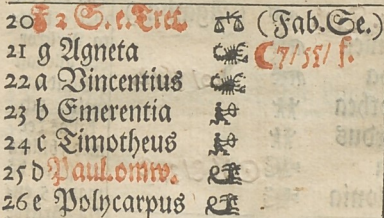 20 F 2 S. e. Tret. ♎ (Fab. Se.)
21 g Agneta ☾ 7/55/ f.
22 a Vincentius
23 b Emerentia
24 c Timotheus
25 d Paul. omw.
26 e Polycarpus